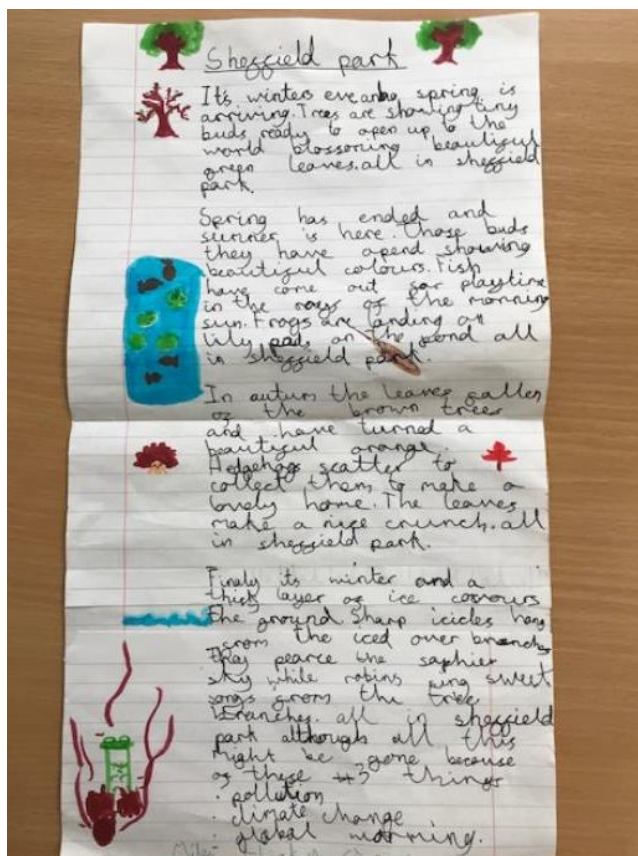 Sheffield park
It's winters eve and spring is
arriving. Trees are showing tiny
buds ready to open up to the
world blossoring beautiful
green leaves. all in sheffield
park.
Spring has ended and
summer is here. those buds
they have opend showing
beautiful colours. Fish
have come out for playtime
in the rays of the morning
sun. Frogs are landing on
lily pads on the pond all
in sheffield park.
In auturn the leaves fallen
of the brown trees
and have turned a
beautiful orange.
Hedgehogs scatter to
collect them to make a
lovely home. The leaves
make a nice crunch. all
in sheffield park.
Finaly its winter and a
thick layer of ice covours
the ground Sharp icicles hang
from the iced over branches
They pearce the saphier
sky while robins sing sweet
songs from the tree
branches. all in sheffield
park although all this
might be gone because
of these 3 things
· pollution
· climate change
· global worming.